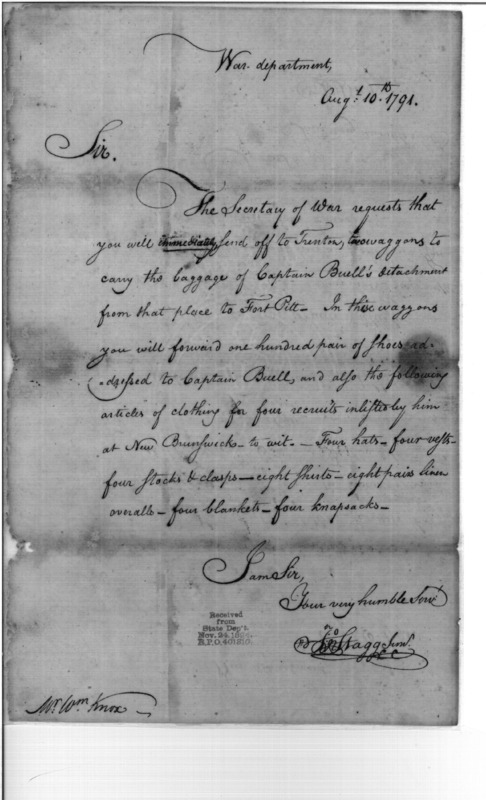 War department,
Augt. 10th. 1791.
Sir.
The Secretary of War requests that
you will immediately send off to Trenton, two waggons to
carry the baggage of Captain Buell's detachment
from that place to Fort Pitt— In these waggons
you will forward one hundred pair of shoes ad-
-dressed to Captain Buell, and also the following
articles of clothing for four recruits inlisted by him
at New Brunswick— to wit.— Four hats— four vests
four stocks & clasps— eight shirts— eight pairs linen
overalls— four blankets— four knapsacks—
I am Sir,
Your very humble Servt.
Jno Stagg Junr.
Received
from
State Dep't.
Nov. 24,
R.P.O.
Mr. Wm. Knox